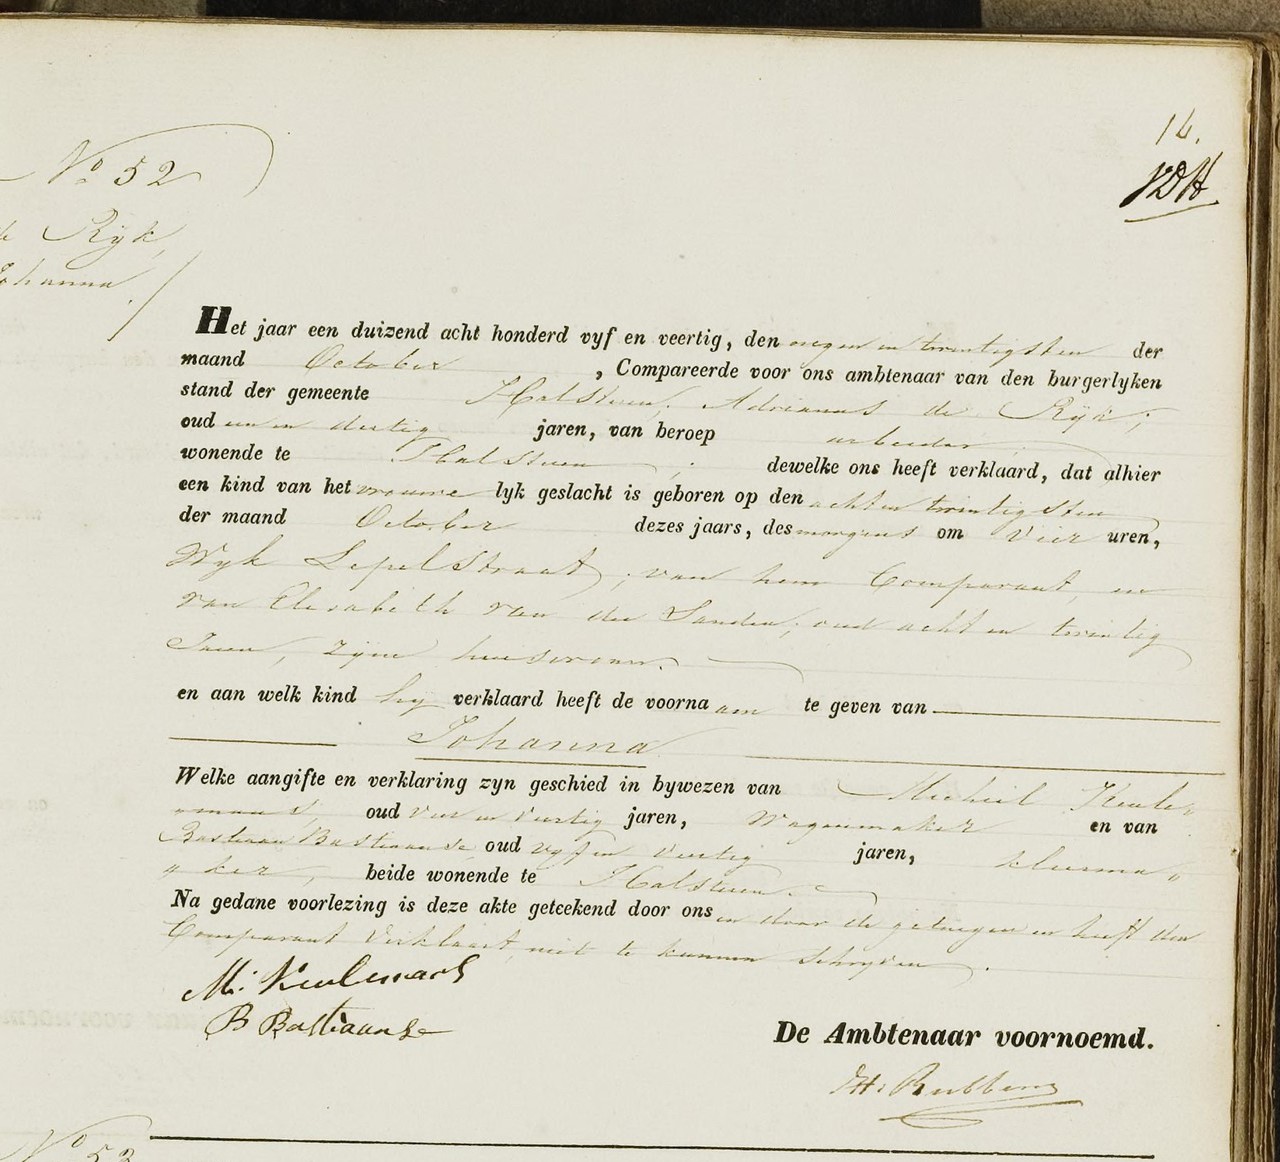 14.
VDH
No 52
de Rijk,
Johanna.
Het jaar een duizend acht honderd vyf en veertig, den negen en twintigsten der
maand October , Compareerde voor ons ambtenaar van den burgerlyken
stand der gemeente Halsteren, Adrianus de Rijk;
oud een en dertig jaren, van beroep arbeider,
wonende te Halsteren ; dewelke ons heeft verklaard, dat alhier
een kind van het vrouwe lyk geslacht is geboren op den acht en twintigsten
der maand October dezes jaars, des morgens om vier uren,
Wyk Lepelstraat, van hem Comparant, en
van Elisabeth van der Sanden, oud acht en twintig
Jaren, zijne huisvrouw.
en aan welk kind hij verklaard heeft de voorna am te geven van
Johanna
Welke aangifte en verklaring zyn geschied in bywezen van Micheil Keule„
„maas, oud vier en veertig jaren, Wagenmaker en van
Bastiaan Bastiaanse, oud vyf en veertig jaren, kleerma„
„ker, beide wonende te Halsteren.
Na gedane voorlezing is deze akte geteekend door ons en door de getuigen en heeft den
Comparant Verklaart niet te kunnen Schryven.
M: Keulemaas
B Bastiaanse
De Ambtenaar voornoemd.
Rubbens
No 53